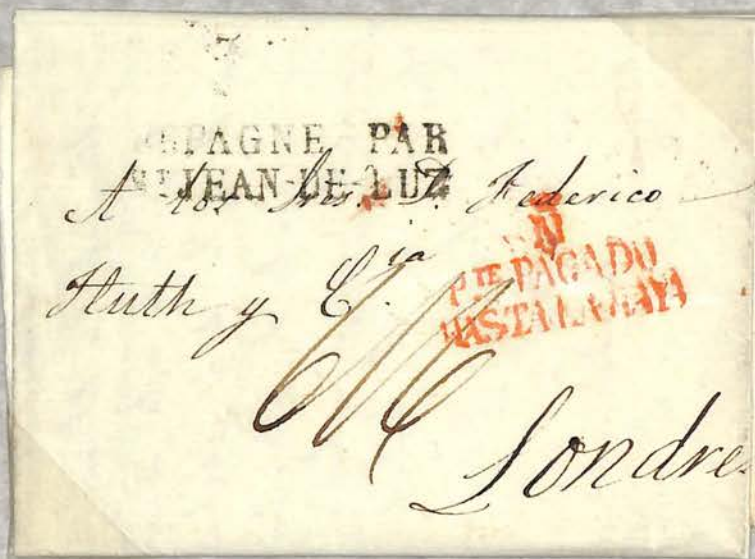 ESPAGNE PAR
ST JEAN-DE-LUZ
A los Sres. D. Federico
Huth y C.ia
N
PTE PAGADO
HASTA LA RAYA
Londres